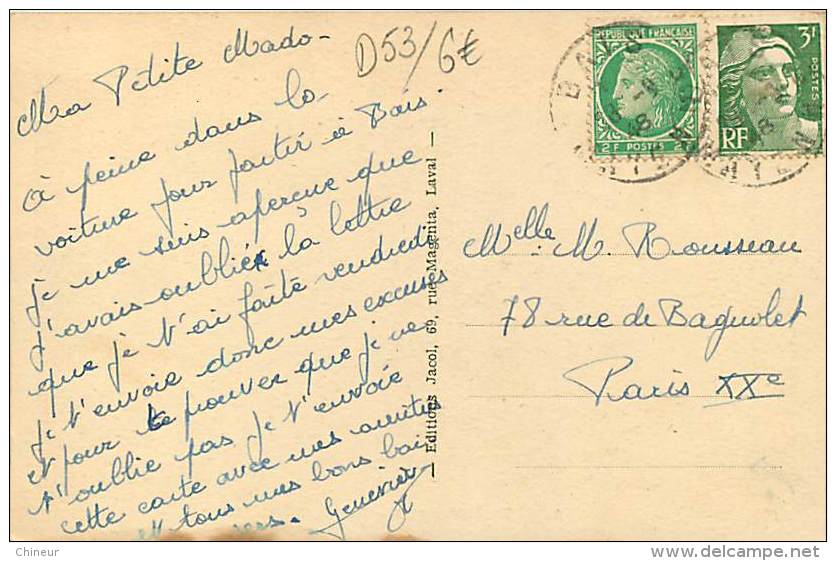 D53/6€
Ma Petite Mado-
à peine dans la
voiture pour partir à Bais.
je me suis aperçue que
j'avais oublié la lettre
que je t'ai faite vendredi
je t'envoie donc mes excuses
et pour te prouver que je ne
t'oublie pas je t'envoie
cette carte avec mes amitiés
et tous mes bons bai
sers. Geneviève
— Editions Jacol, 69, rue Magenta, Laval —
REPUBLIQUE FRANÇAISE
2F POSTES 2F
3F
POSTES
RF
BAIS
Melle. M. Rousseau
78 rue de Bagnolet
Paris XXe
Chineur
delcampe.net